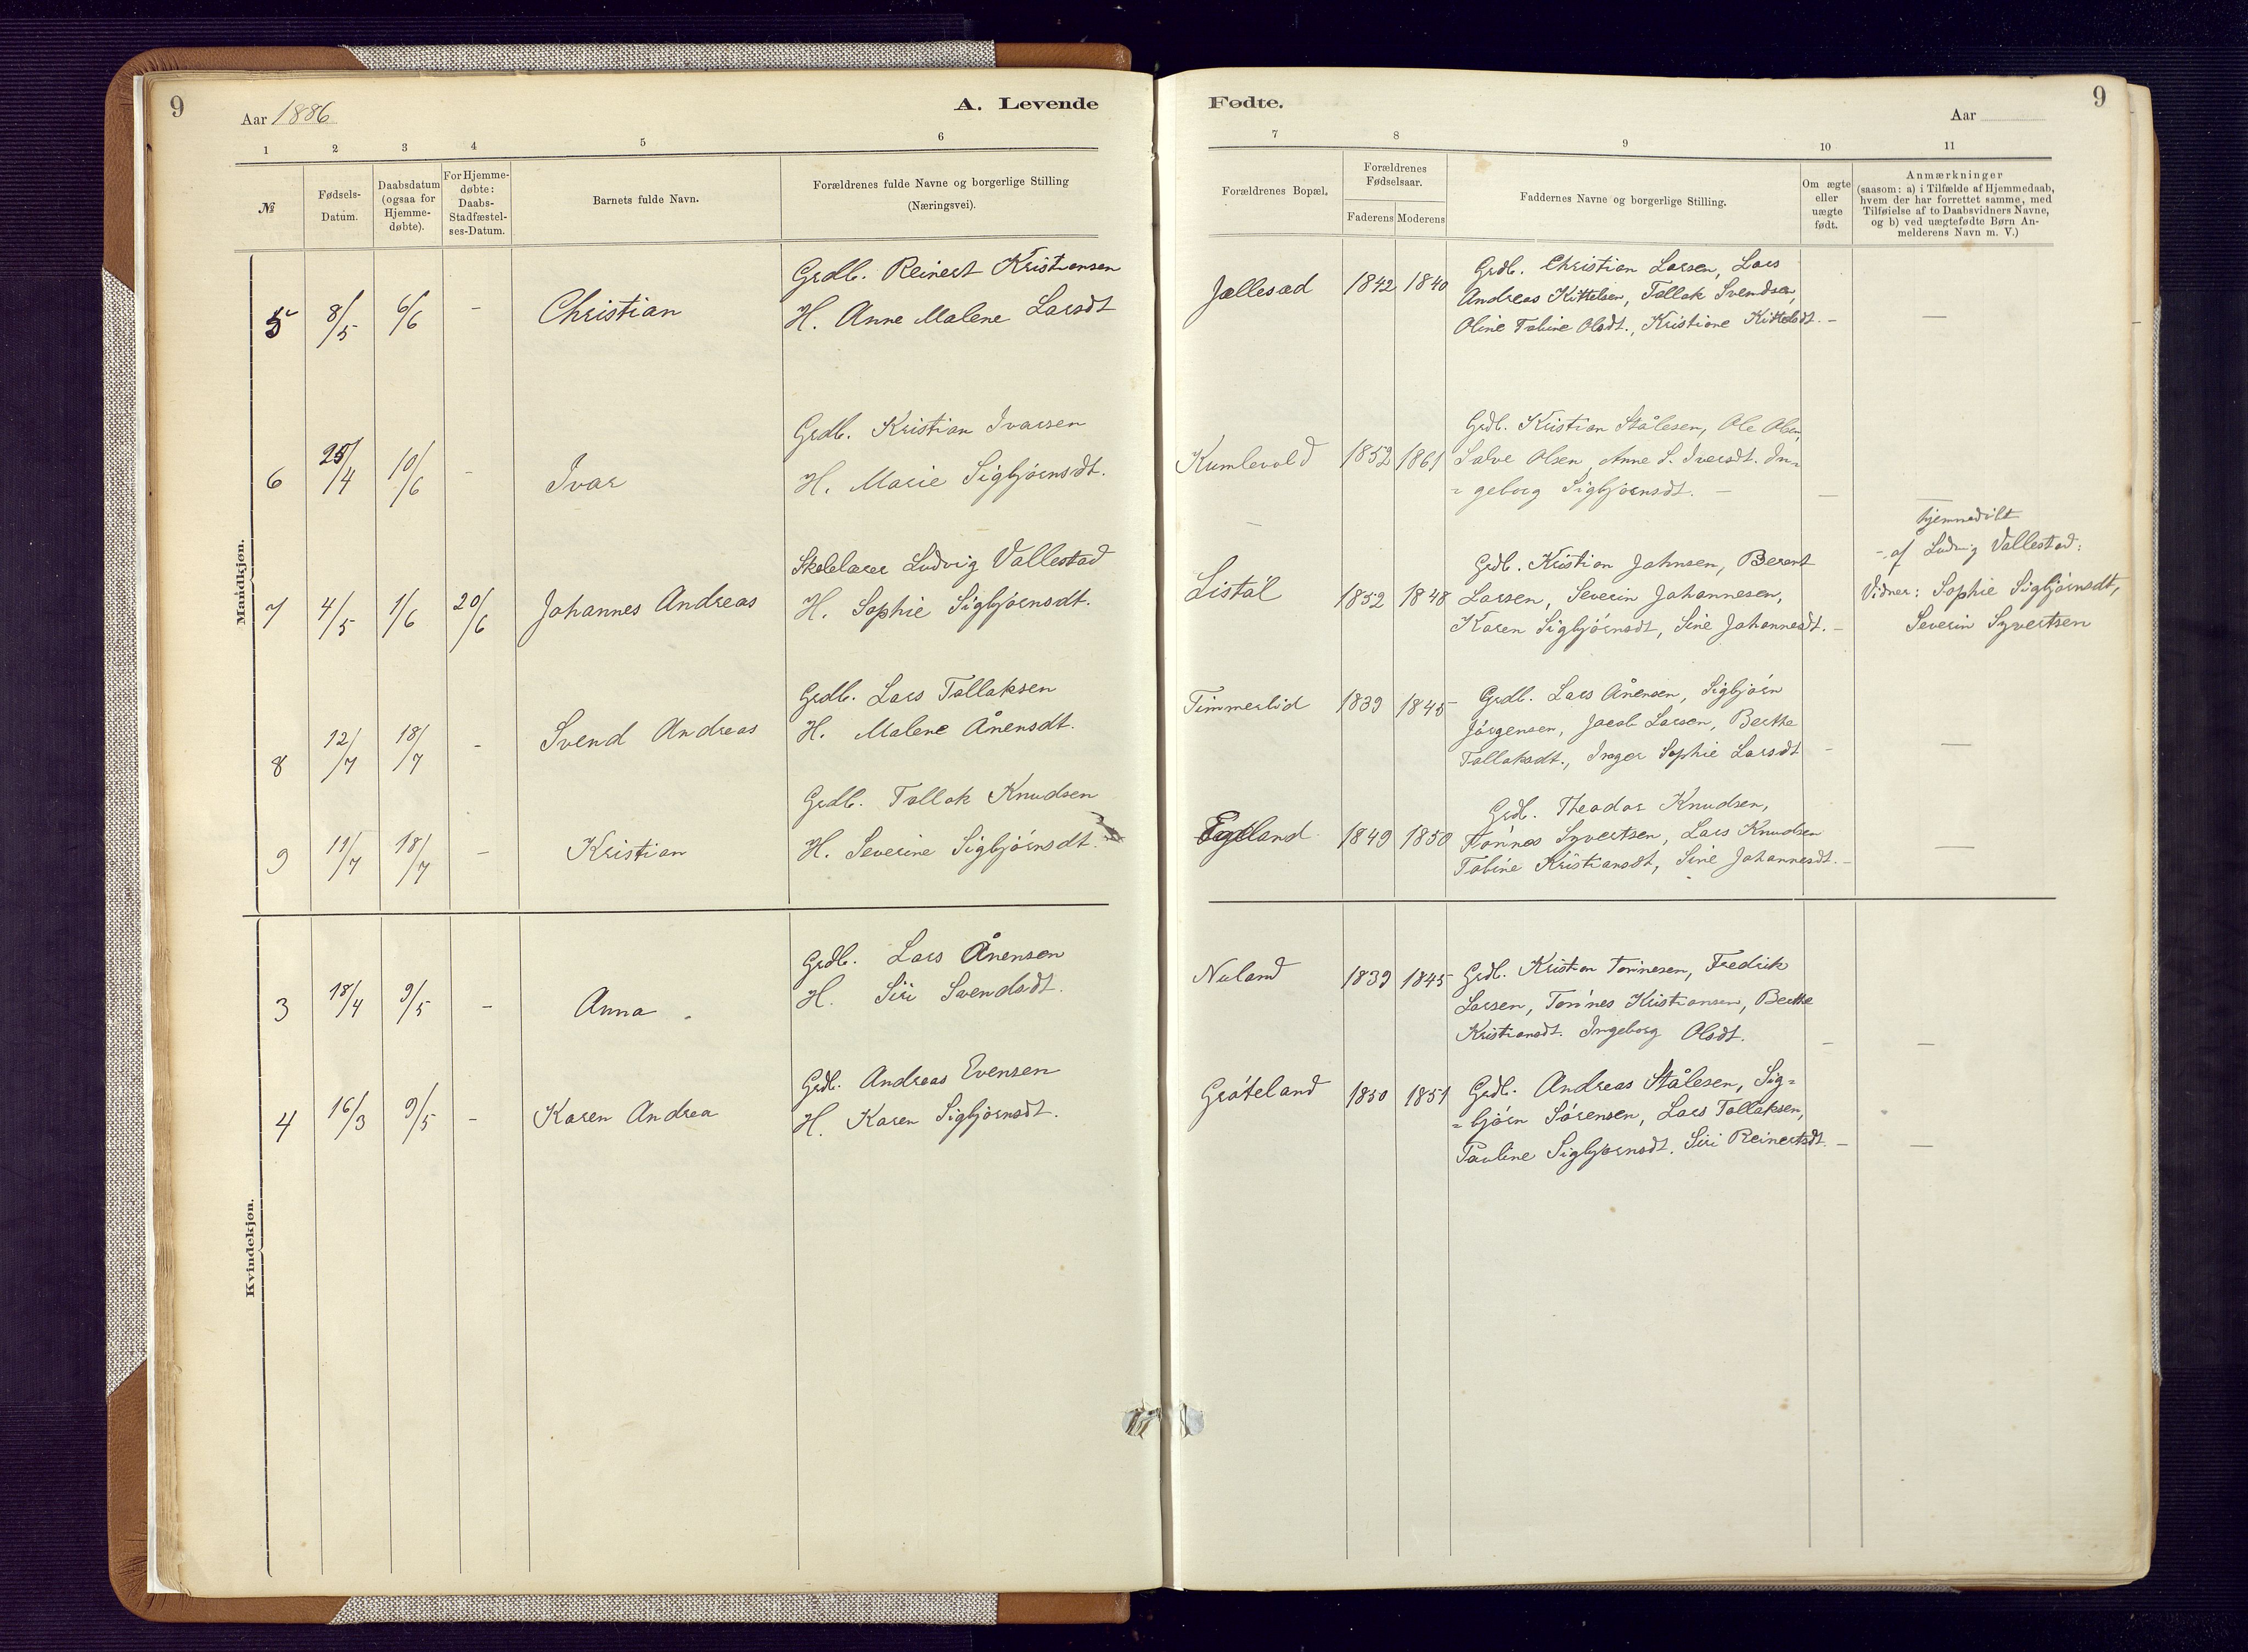 9
Aar 1886
A. Levende
1 2 3 4 5 6
№
Fødsels-
Datum.
Daabsdatum
(ogsaa for
Hjemme-
døbte).
For Hjemme-
døbte:
Daabs-
Stadfæstel-
ses-Datum.
Barnets fulde Navn.
Forældrenes fulde Navne og borgerlige Stilling
(Næringsvei).
Mandkjøn.
5 8/5 6/6 - Christian
Grdb. Reinert Kristiansen
H. Anne Malene Larsdt
6 25/4 10/6 - Ivar
Grdb. Kristian Ivarsen
H. Marie Sigbjørnsdt.
7 4/5 1/6 20/6 Johannes Andreas
Skolelærer Ludvig Vallestad
H. Sophie Sigbjørnsdt.
8 12/7 18/7 - Svend Andreas
Grdb. Lars Tallaksen
H. Malene Ånensdt.
9 11/7 18/7 - Kristian
Grdb. Tallak Knudsen
H. Severine Sigbjørnsdt
Kvindekjøn.
3 18/4 9/5 - Anna
Grdb. Lars Ånensen
H. Siri Svendsdt.
4 16/3 9/5 - Karen Andrea
Grdb. Andreas Evensen
H. Karen Sigbjørnsdt.
Fødte.
9
Aar
7 8 9 10 11
Forældrenes Bopæl.
Forældrenes
Fødselsaar.
Faderens Moderens
Faddernes Navne og borgerlige Stilling.
Om ægte
eller
uægte
født.
Anmærkninger
(saasom: a) i Tilfælde af Hjemmedaab,
hvem der har forrettet samme, med
Tilføielse af to Daabsvidners Navne,
og b) ved uægtefødte Børn An-
melderens Navn m. V.)
Jallesad 1842 1840
Grdb. Christian Larsen, Lars
Andreas Kittelsen, Tallak Svendsen,
Oline Tabine Olsdt., Kristiane Kittelsdt. -
—
Kumlevold 1852 1861
Grdb. Kristian Stålesen, Ole Olsen,
Salve Olsen, Anne S. Iversdt. In-
= geborg Sigbjørnsdt. -
—
Listøl 1852 1848
Grdb. Kristian Jahnsen, Berent
Larsen, Severin Johannesen,
Karen Sigbjørnsdt, Sine Johannesdt. -
hjemmedøbt
- af Ludvig Vallestad:
Vidner: Sophie Sigbjørnsdt,
Severin Syvertsen
Timmerlid 1839 1845
Grdb. Lars Ånensen, Sigbjørn
Jørgensen, Jacob Larsen, Berthe
Tallaksdt., Inger Sophie Larsdt -
—
Egeland 1849 1850
Grdb. Theodor Knudsen,
Tønnes Syvertsen, Lars Knudsen
Tabine Kristiansdt, Sine Johannesdt. -
—
Nuland 1839 1845
Grdb. Kristian Tønnesen, Fredrik
Larsen, Tønnes Kristiansen, Berthe
Kristiansdt. Ingeborg Olsdt.
- —
Grøteland 1850 1851
Grdb. Andreas Stålesen, Sig=
= bjørn Sørensen, Lars Tallaksen,
Pauline Sigbjørnsdt. Siri Reinertsdt. -
—